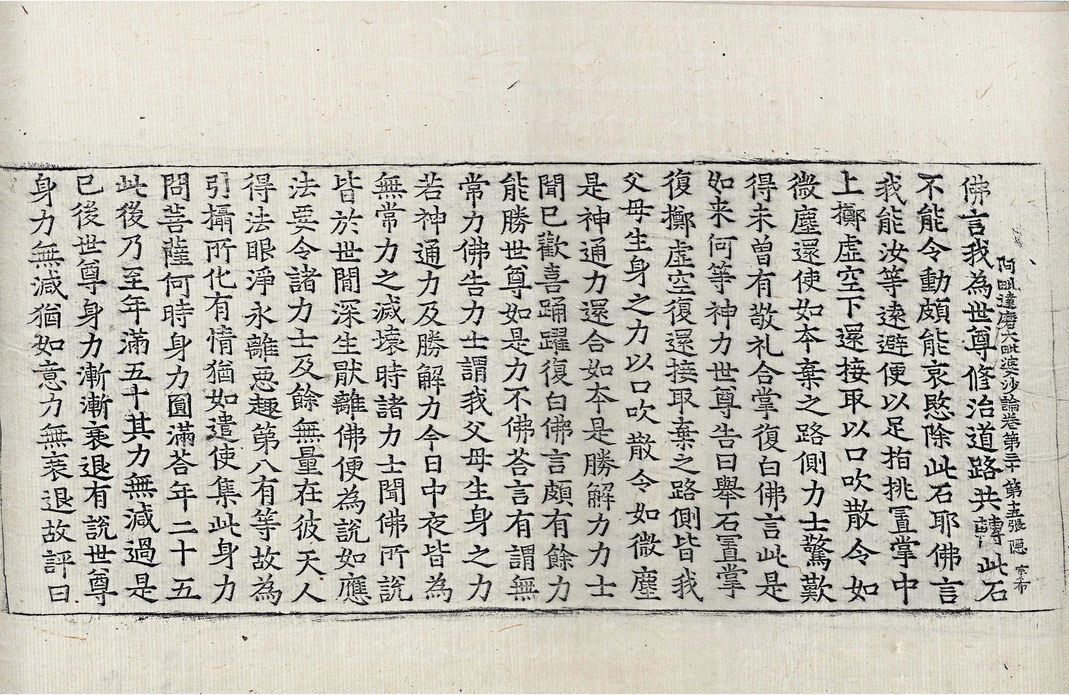 阿毗達磨大毗婆沙論卷第三十 第十五張 隱 宗布
佛言我為世尊修治道路共轉此石
不能令動頗能哀愍除此石耶佛言
我能汝等遠避便以足指挑置掌中
上擲虛空下還接取以口吹散令如
微塵還使如夲棄之路側力士驚歎
得未曾有敬礼合掌復白佛言此是
如来何等神力世尊告曰舉石置掌
復擲虛空復還接取棄之路側皆我
父母生身之力以口吹散令如微塵
是神通力還合如夲是勝解力力士
聞已歡喜踊躍復白佛言頗有餘力
能勝世尊如是力不佛荅言有謂無
常力佛告力士謂我父母生身之力
若神通力及勝解力今日中夜皆為
無常力之滅壞時諸力士聞佛所說
皆於世間深生猒離佛便為說如應
法要令諸力士及餘無量在彼天人
得法眼淨永離惡趣第八有等故為
引攝所化有情猶如遣使集此身力
問菩薩何時身力圓滿荅年二十五
此後乃至年滿五十其力無減過是
已後世尊身力漸漸衰退有說世尊
身力無減猶如意力無衰退故評曰